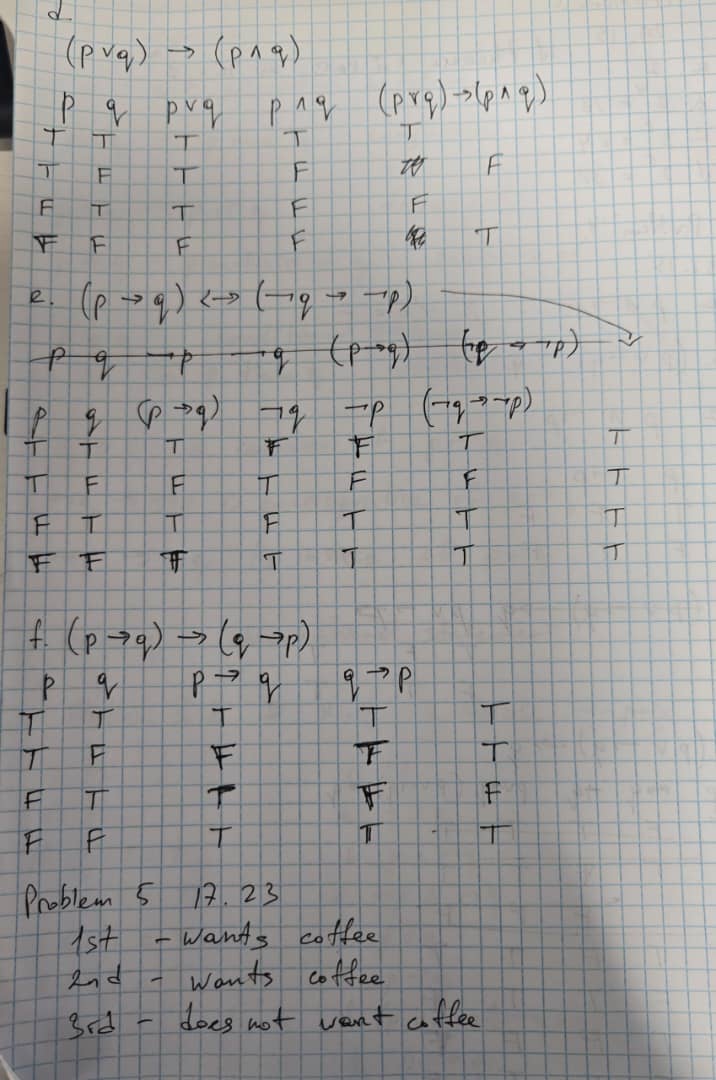 d.
(p ∨ q) → (p ∧ q)
p q p∨q p ∧ q (p∨q)→(p ∧ q)
T T T T T
T F T F F
F T T F F
F F F F T
e. (p → q) <-> (¬q → ¬p)
p q ¬p ¬q (p→q) (¬q → ¬p)
p q (p →q) ¬q ¬p (¬q→¬p)
T T T F F T T
T F F T F F T
F T T F T T T
F F T T T T
f. (p →q) → (q →p)
p q p → q q → p
T T T T T
T F F T
F T T F F
F F T T T
Problem 5 17.23
1st - wants coffee
2nd - wants coffee
3rd - does not want coffee